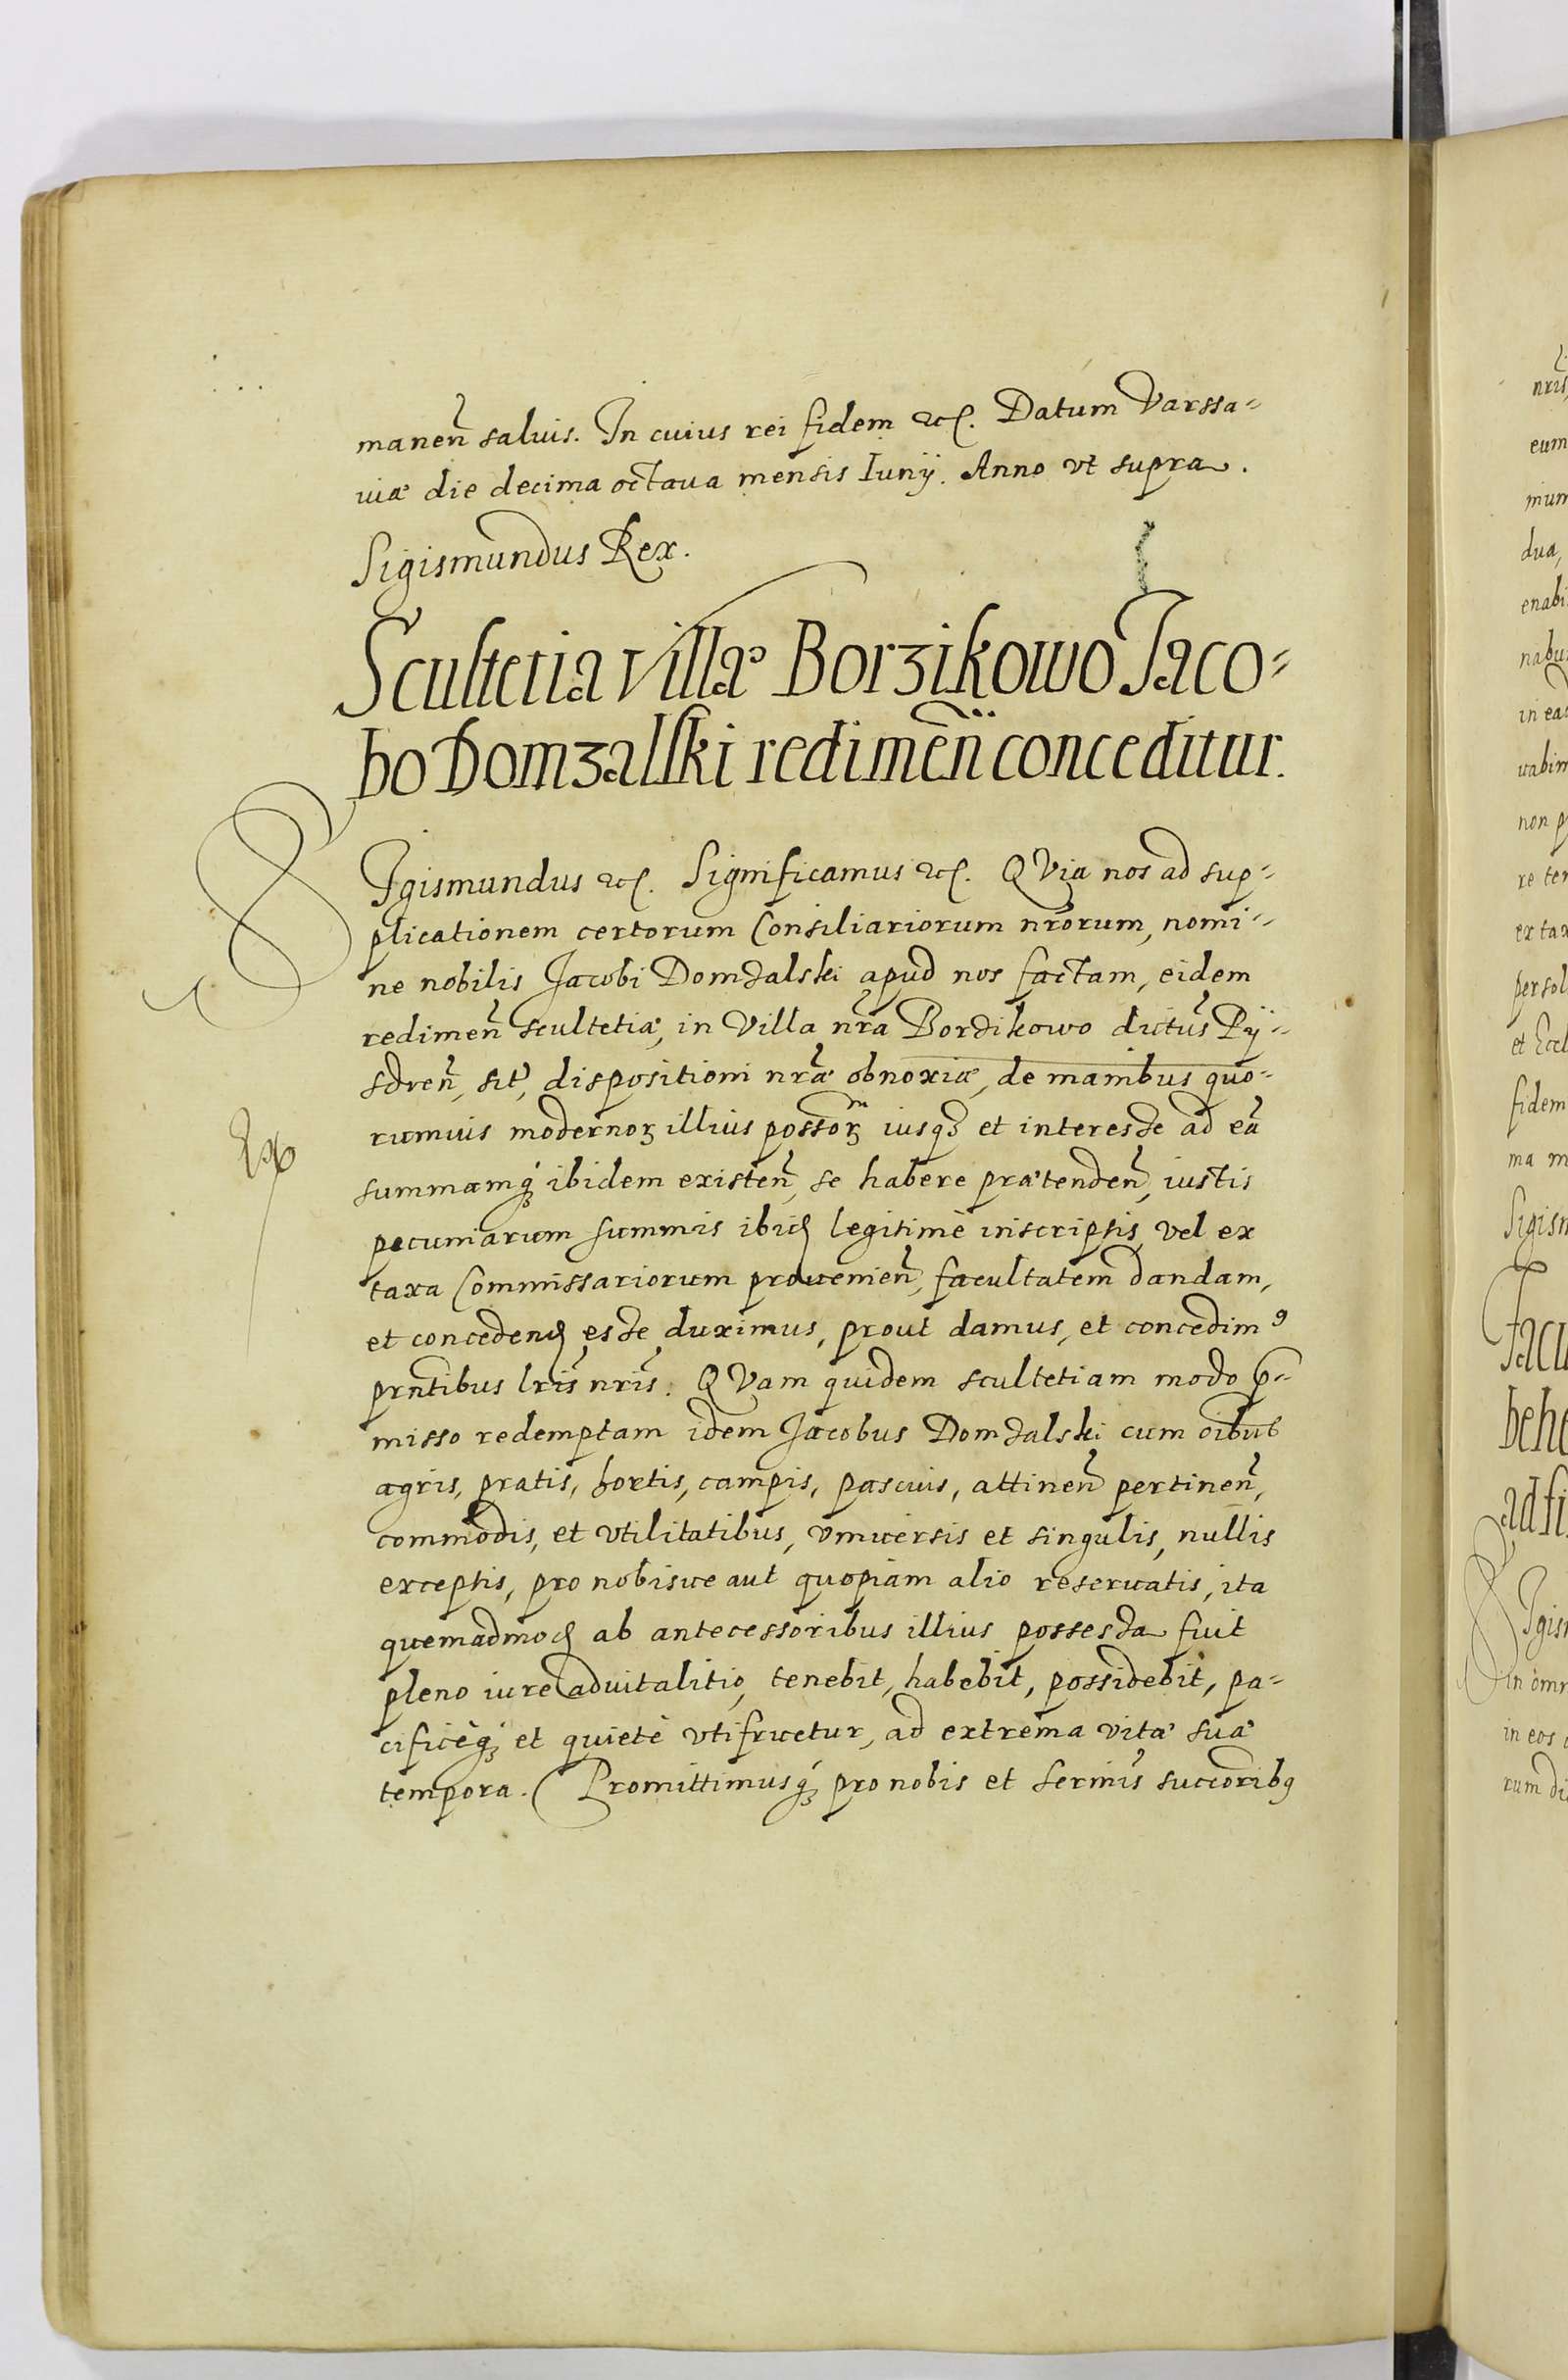 manen̄ saluis. In cuius rei fidem etc. Datum Varssa=
uiæ die decima octaua mensis Iunij. Anno vt supra.
Sigismundus Rex.
Scultetia villæ Borzikowo Jaco=
bo Domzalski redimen̄ conceditur.
SIgismundus etc. Significamus etc. QVia nos ad sup=
plicationem certorum Consiliariorum nrōrum, nomi=
ne nobilis Jacobi Domzalski apud nos factam, eidem
redimen̄ scultetiæ, in Villa nrā Borzikowo dictus̄ Pij=
sdren̄, sit̄, dispositioni nrǣ obnoxiæ, de manibus quo=
rumuis modernoꝝ illius possoꝝ iusqꝫ et interesse ad eā
Ex
summamqꝫ ibidem existen̄, se habere prætenden̄, iustis
pecuniarum summis ibid legitimè inscriptis, vel ex
taxa Commissariorum prouenien̄, facultatem dandam,
et concedend esse duximus, prout damus, et concedimꝰ
prn̄tibus lris̄ nris̄. QVam quidem scultetiam modo p̄=
misso redemptam idem Jacobus Domzalski cum oībus
agris, pratis, hortis, campis, pascuis, attinen̄ pertinen̄,
commodis, et vtilitatibus, vniuersis et singulis, nullis
exceptis, pro nobisue aut quopiam alio reseruatis, ita
quemadmod ab antecessoribus illius possessa fuit
pleno iure aduitalitio, tenebit, habebit, possidebit, pa=
cificèqꝫ et quietè vtifruetur, ad extrema vitæ suæ
tempora. Promittimusqꝫ pro nobis et sermis̄ succoribꝰ
nris
eum
dua,
enabi
in ea
non p
re ter
ex tax
persol
fidem
ma m
Sigism
Facu
behe
ad fi
Igism
in omn
in eos
rum di